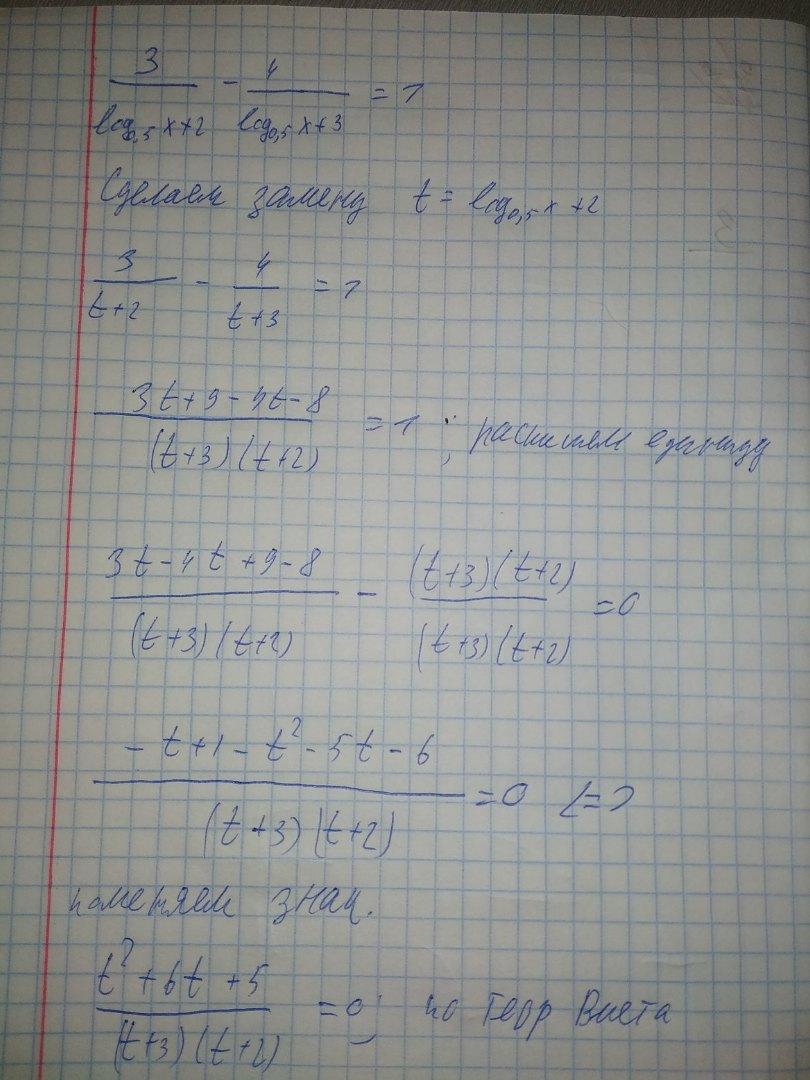 3/(log₀,₅ x+2) - 4/(log₀,₅ x+3) = 1
Сделаем замену t = log₀,₅ x +2
3/(t+2) - 4/(t+3) = 1
(3t+9-4t-8)/((t+3)(t+2)) = 1 ; распишем единицу
(3t-4t+9-8)/((t+3)(t+2)) - ((t+3)(t+2))/((t+3)(t+2)) = 0
(-t+1-t²-5t-6)/((t+3)(t+2)) = 0 <=>
поменяем знак.
(t²+6t+5)/((t+3)(t+2)) = 0; по теор Виета